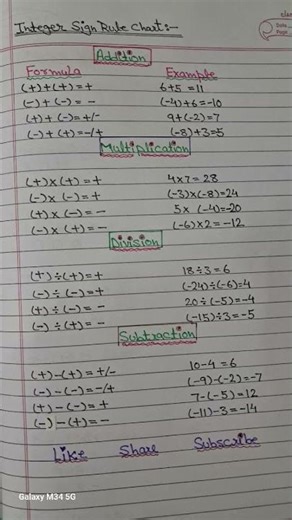 Integer Sign Rule Chart:-
Addition
Formula Example
(+)+(+)=+ 6+5=11
(-)+(-)=- (-4)+6=-10
(+)+(-)=+/- 9+(-2)=7
(-)+(+)=-/+ (-8)+3=5
Multiplication
(+)×(+)=+ 4×7=28
(-)×(-)=+ (-3)×(-8)=24
(+)×(-)=- 5×(-4)=-20
(-)×(+)=- (-6)×2=-12
Division
(+)÷(+)=+ 18÷3=6
(-)÷(-)=+ (-24)÷(-6)=4
(+)÷(-)=- 20÷(-5)=-4
(-)÷(+)=- (-15)÷3=-5
Subtraction
(+)-(+)=+/- 10-4=6
(-)-(-)=-/+ (-9)-(-2)=-7
(+)-(-)=+ 7-(-5)=12
(-)-(+)=- (-11)-3=-14
Like Share Subscribe
Galaxy M34 5G